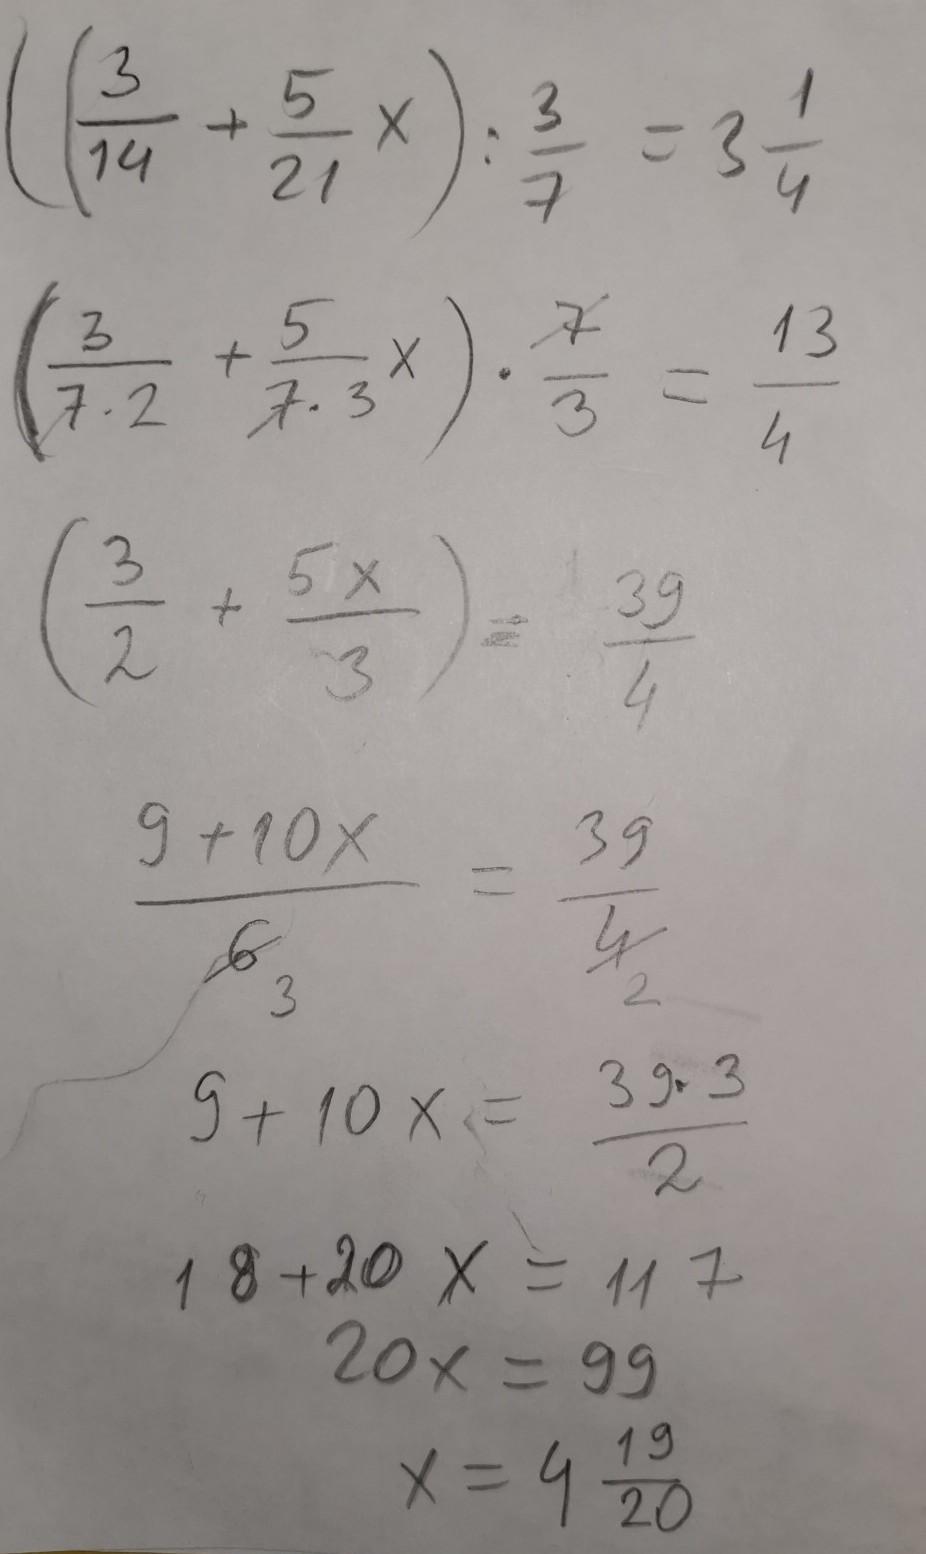 ((3/14 + 5/21 x) : 3/7 = 3 1/4
(3/7·2 + 5/7·3 x) · 7/3 = 13/4
(3/2 + 5x/3) = 39/4
9+10x/6 3 = 39/4 2
9+10x = 39·3/2
18+20x = 117
20x = 99
x = 4 19/20